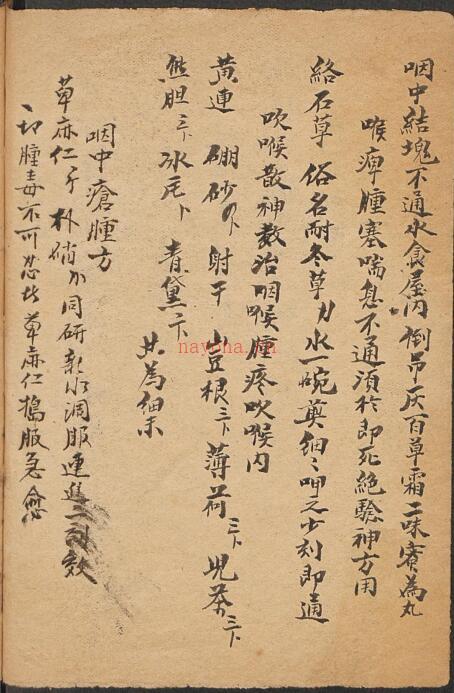 咽中結塊不通水食屋內倒吊灰百草霜二味蜜為丸
喉痺腫塞喘息不通須臾即死絕驗神方用
絡石草 俗名耐冬草 水一碗煎細細呷之少刻即通
吹喉散神效治咽喉腫疼吹喉內
黃連 硼砂 射干 山豆根三卜 薄荷三卜 兒茶三卜
熊胆三卜 冰片卜 青黛二卜 共為細末
咽中瘡腫方
草麻仁 朴硝 同研新水調服連進二三效
一切腫毒不可忍者草麻仁搗服急愈
nayona.cn